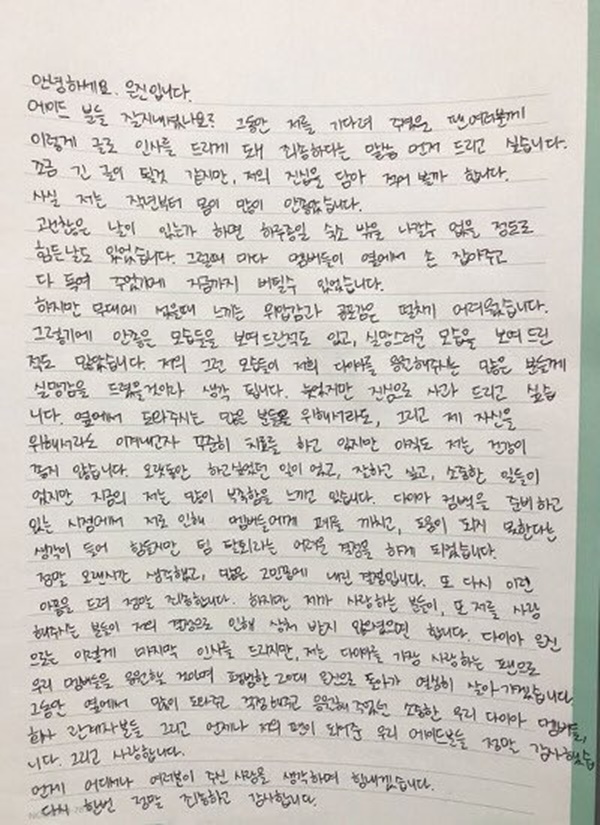 안녕하세요. 은진입니다.
에이드 분들 잘지내셨나요? 그동안 저를 기다려 주셨을 팬여러분께
이렇게 글로 인사를 드리게 돼 죄송하다는 말씀 먼저 드리고 싶습니다.
조금 긴 글이 될것 같지만, 저의 진심을 담아 적어 볼까 합니다.
사실 저는 작년부터 몸이 많이 안좋았습니다.
괜찮은 날이 있는가 하면 하루종일 숙소 밖을 나갈수 없을 정도로
힘든날도 있었습니다. 그럴때 마다 멤버들이 옆에서 손 잡아주고
다 독여 주었기에 지금까지 버틸수 있었습니다.
하지만 무대에 섰을때 느끼는 위압감과 공포감은 떨치기 어려웠습니다.
그렇기에 안좋은 모습들을 보여드린적도 있고, 실망스러운 모습을 보여 드린
적도 많았습니다. 저의 그런 모습들이 저희 다이아를 응원해주시는 많은 분들께
실망감을 드렸을것이라 생각 됩니다. 늦었지만 진심으로 사과 드리고 싶습
니다. 옆에서 도와주시는 많은 분들을 위해서라도, 그리고 제 자신을
위해서라도 이겨내고자 꾸준히 치료를 하고 있지만 아직도 저는 건강이
좋지 않습니다. 오랫동안 하고싶었던 일이 었고, 잘하고 싶고, 소중한 일들이
었지만 지금의 저는 많이 부족함을 느끼고 있습니다. 다이아 컴백을 준비하고
있는 시점에서 저로 인해 멤버들에게 폐를 끼치고, 도움이 되지 못한다는
생각이 들어 힘들지만 팀 탈퇴라는 어려운 결정을 하게 되었습니다.
정말 오랜시간 생각했고, 많은 고민끝에 내린 결정입니다. 또 다시 이런
아픔을 드려 정말 죄송합니다. 하지만 제가 사랑하는 분들이, 또 저를 사랑
해주시는 분들이 저의 결정으로 인해 상처 받지 않으셨으면 합니다. 다이아 은진
으로는 이렇게 마지막 인사를 드리지만, 저는 다이아를 가장 사랑하는 팬으로
우리 멤버들을 응원할 것이며 평범한 20대 은진으로 돌아가 열심히 살아가겠습니다.
그동안 옆에서 많이 도와주고 걱정해주고 응원해 주었던 소중한 우리 다이아 멤버들,
회사 관계자분들 그리고 언제나 저의 편이 되어준 우리 에이드분들 정말 감사했습
니다. 그리고 사랑합니다.
언제 어디서나 여러분이 주신 사랑을 생각하며 힘내겠습니다.
다시 한번 정말 죄송하고 감사합니다.